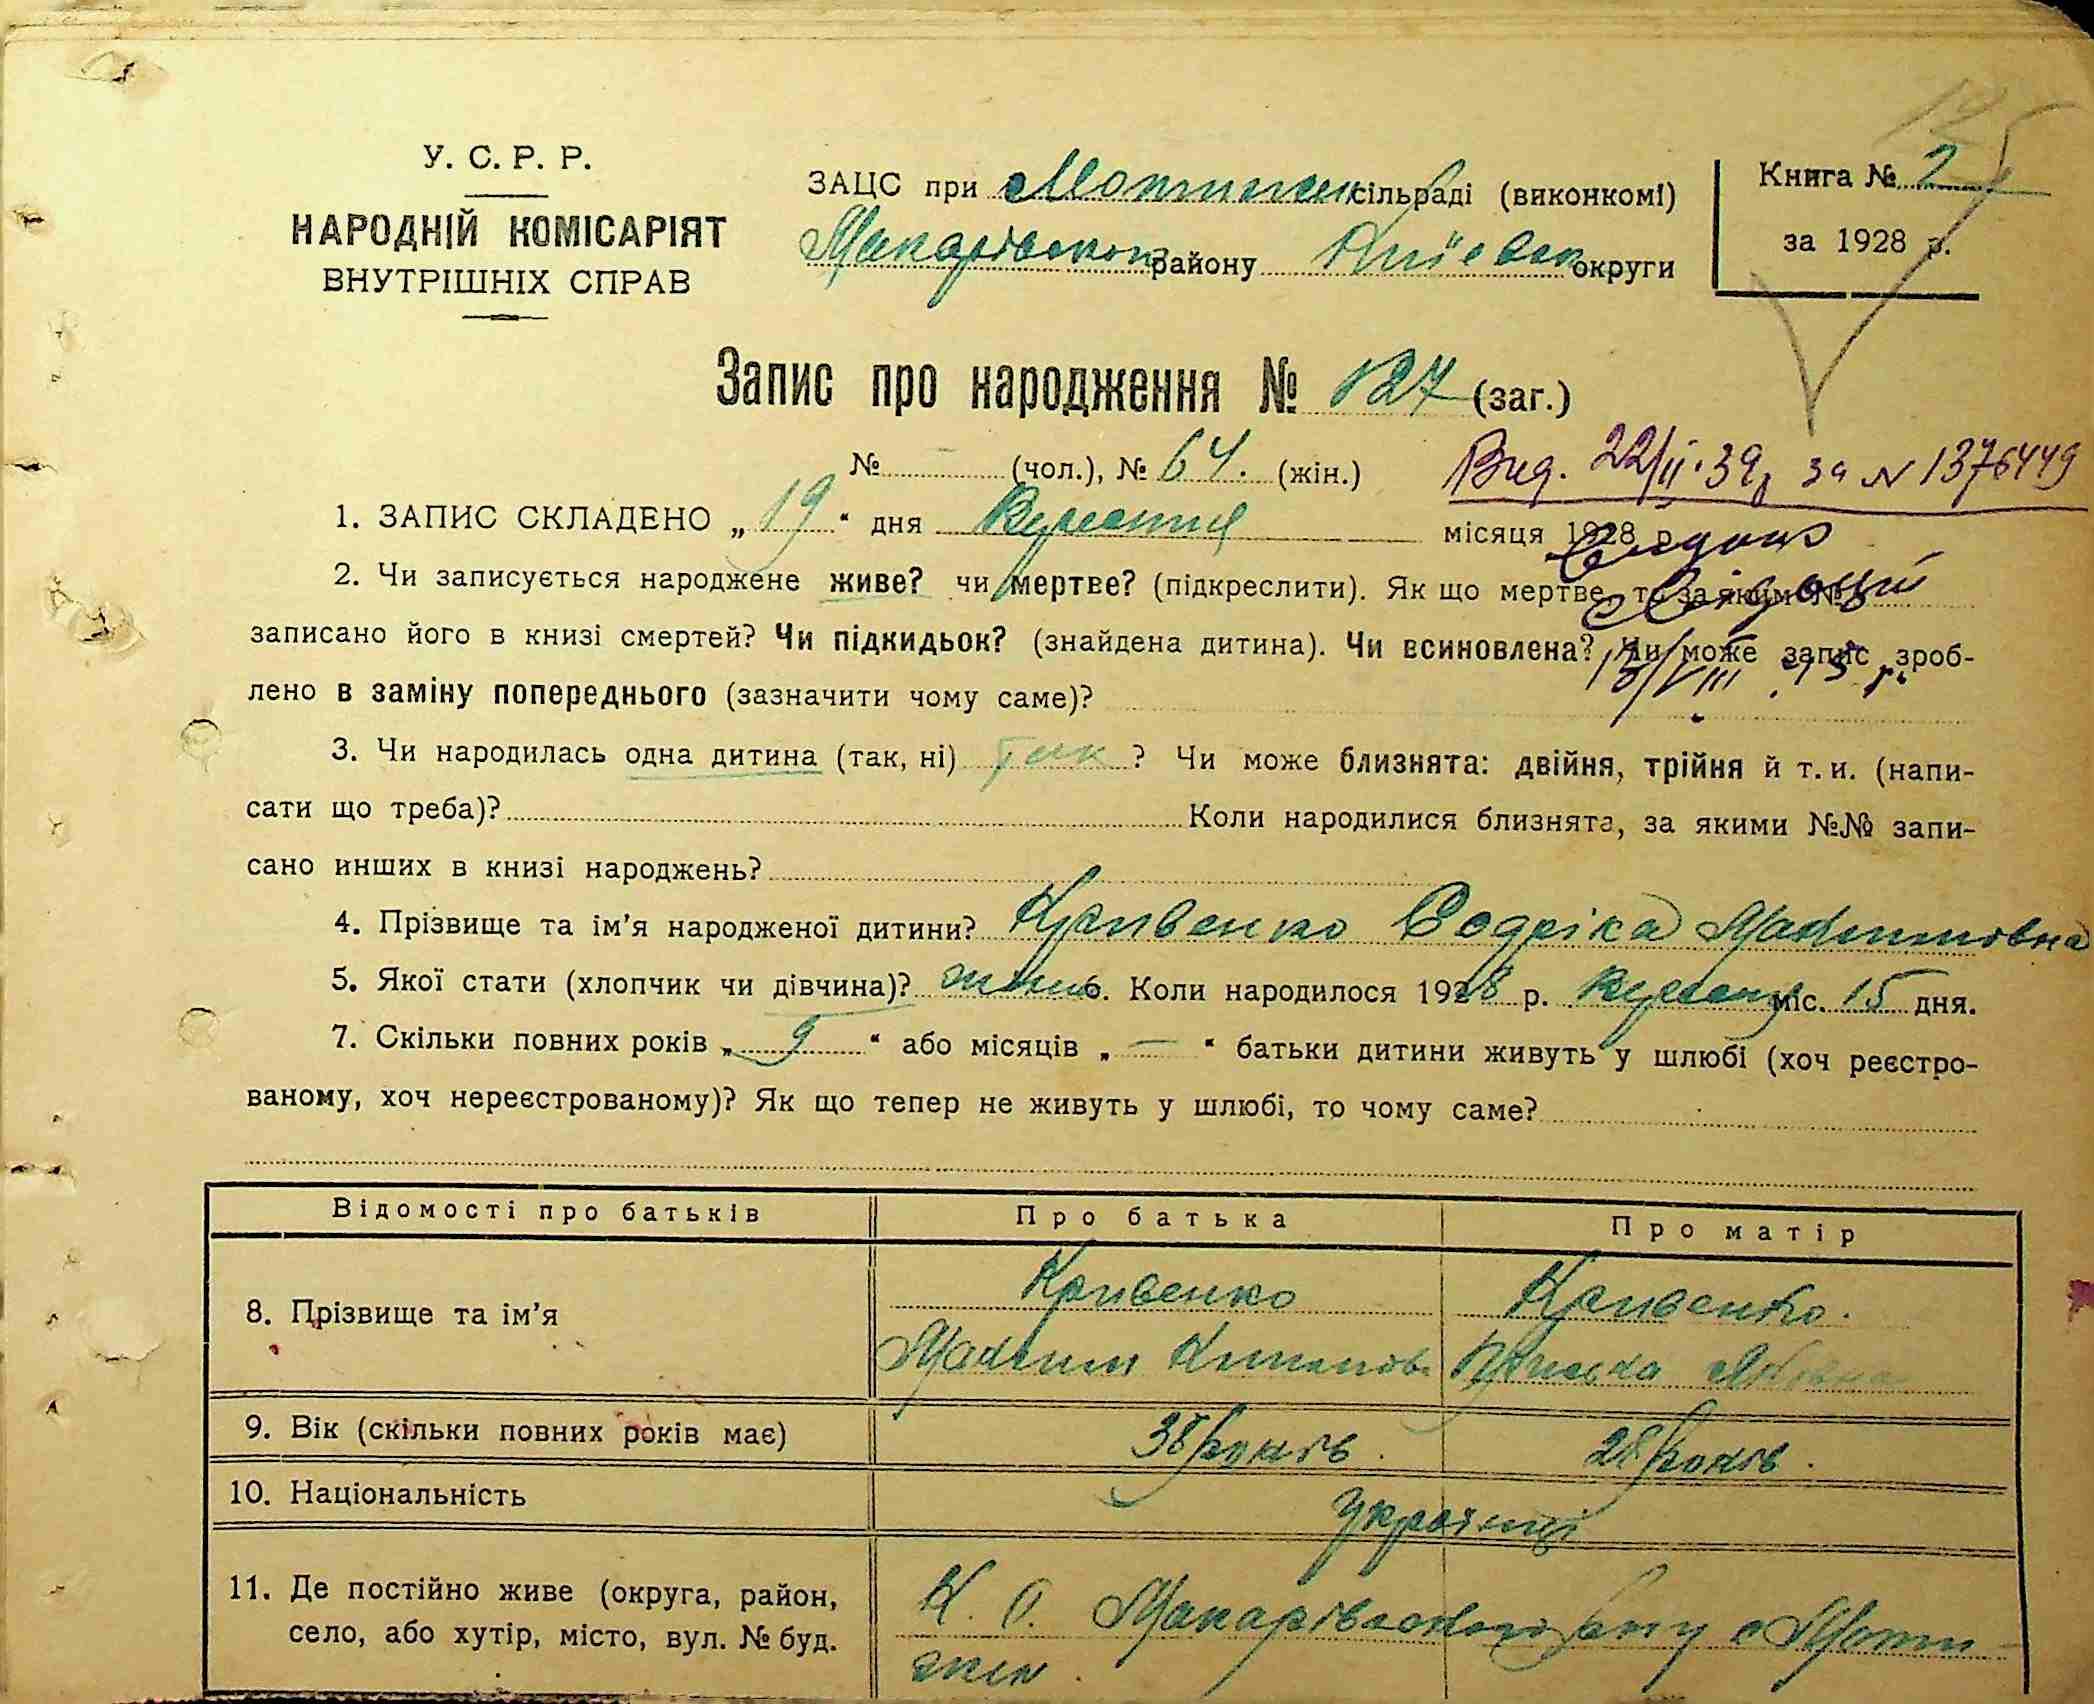 125
У. С. Р. Р.
НАРОДНІЙ КОМІСАРІЯТ
ВНУТРІШНІХ СПРАВ
ЗАЦС при Мотижин сільраді (виконкомі)
Макарівськ району Київськ округи
Книга № 2
за 1928 р.
Запис про народження № 127 (заг.)
№ — (чол.), № 64. (жін.)
Вид. 22/II·39р за N 1376449
1. ЗАПИС СКЛАДЕНО „ 19 “ дня Вересния місяця 1928 р.
2. Чи записується народжене живе? чи мертве? (підкреслити). Як що мертве, то за яким №
записано його в книзі смертей? Чи підкидьок? (знайдена дитина). Чи всиновлена? Чи може запис зроб-
лено в заміну попереднього (зазначити чому саме)?
3. Чи народилась одна дитина (так, ні) Так ? Чи може близнята: двійня, трійня й т. и. (напи-
сати що треба)? Коли народилися близнята, за якими №№ запи-
сано инших в книзі народжень?
4. Прізвище та ім’я народженої дитини? Кривенко Максимовна
5. Якої стати (хлопчик чи дівчина)? жін. 6. Коли народилося 1928 р. Вересня міс. 15 дня.
7. Скільки повних років „ 9 “ або місяців „ — “ батьки дитини живуть у шлюбі (хоч реєстро-
ваному, хоч нереєстрованому)? Як що тепер не живуть у шлюбі, то чому саме?
Відомості про батьків Про батька Про матір
8. Прізвище та ім’я Кривенко Кривенко.
Максим Пріська Яковна
9. Вік (скільки повних років має) 38 років. 28 років.
10. Національність Українці
11. Де постійно живе (округа, район, К. О. Макарівського р-ну с Моти-
село, або хутір, місто, вул. № буд. жин.